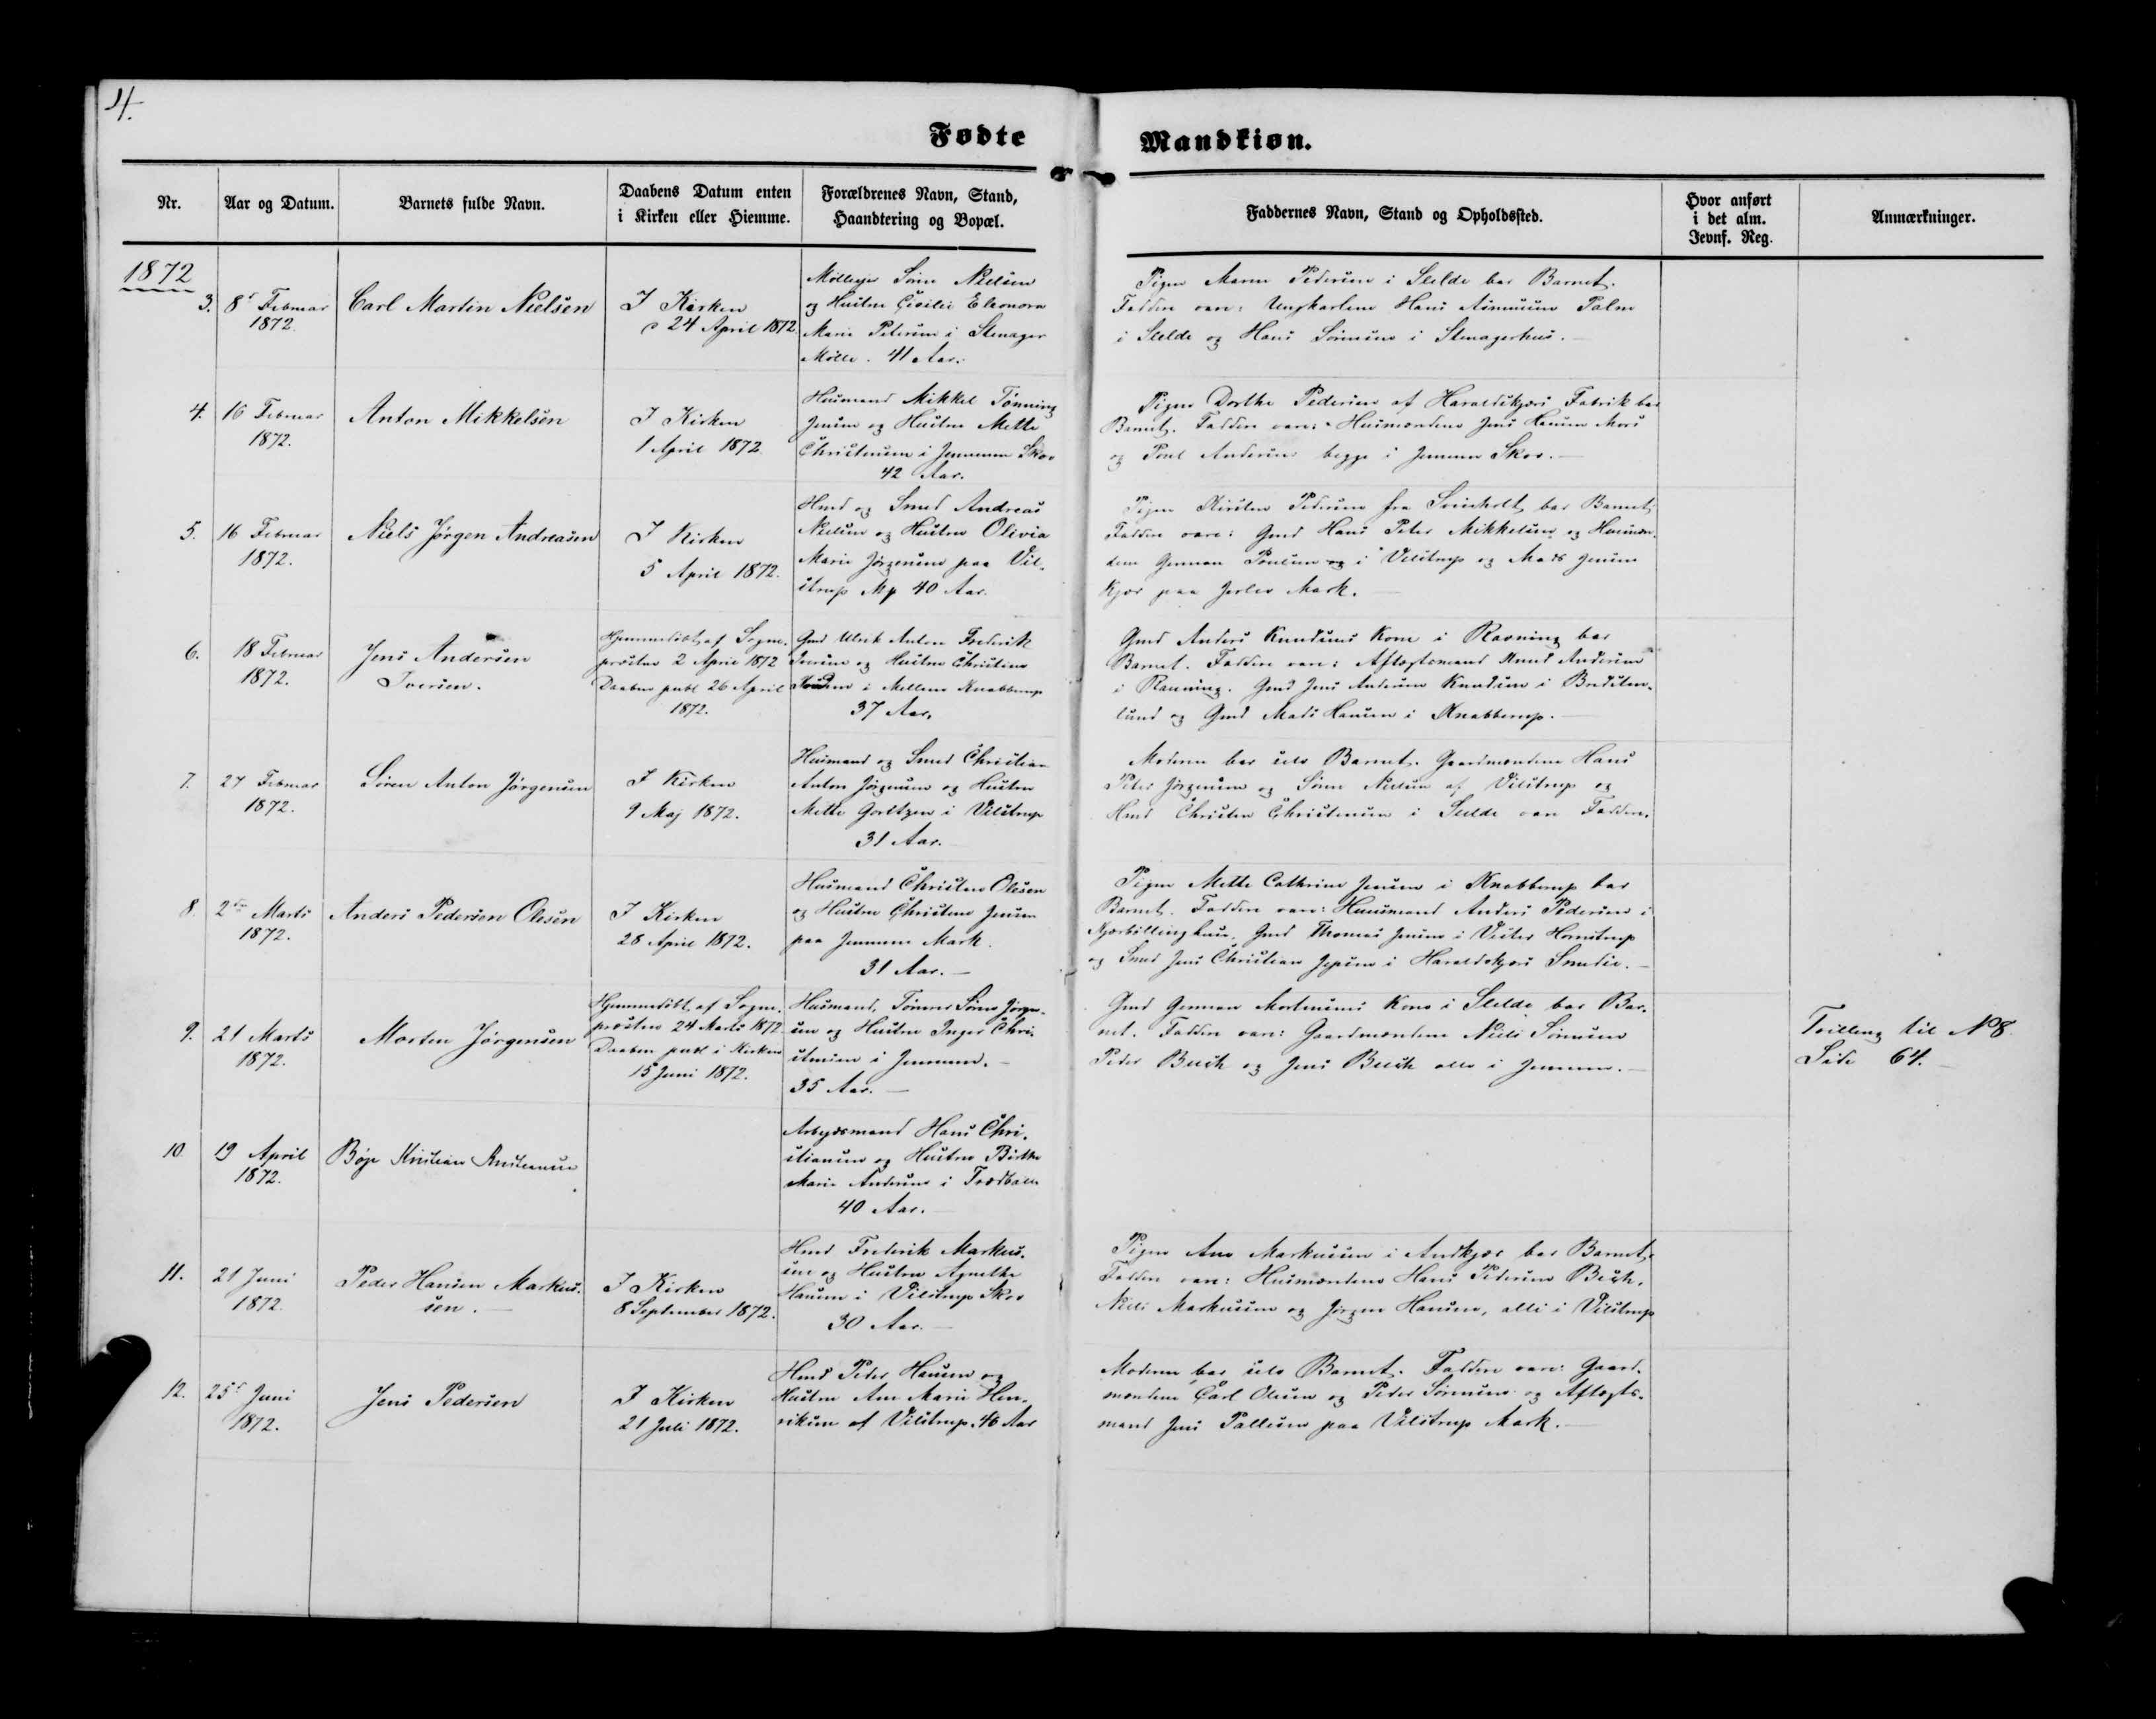 4.
Fødte
Mandkiøn.
Nr.
Aar og Datum.
Barnets fulde Navn.
Daabens Datum enten
i Kirken eller Hiemme.
Forældrenes Navn, Stand,
Haandtering og Bopæl.
Faddernes Navn, Stand og Opholdssted.
Hvor anført
i det alm.
Jevnf. Reg.
Anmærkninger.
1872
3.
8 Februar
1872.
Carl Martin Nielsen
I Kirken
24 April 1872
Søren Nielsen
og Hustru Cicilie Eleonora
Marie Petersen i Stenager
Mølle. 41 Aar.
Pigen Maren Pedersen i Slelde bar Barnet.
Faddere vare: Ungkarlene Hans Asmusen Palm
i Slelde og Hans Sørensen i Stenagerhus.
4.
16 Februar
1872.
Anton Mikkelsen
I Kirken
1 April 1872.
Husmand Mikkel Tønning
Jensen og Hustru Mette
Christensen i Jennum Skov
42 Aar.
Pigen Dorthe Pedersen af Haraldskjærs Fabrik bar
Barnet. Faddere vare: Husmændene Jens Hansen Mors
og Poul Andersen begge i Jennum Skov.
5.
16 Februar
1872.
Niels Jørgen Andreasen
I Kirken
5 April 1872.
Hmd og Smed Andreas
Nielsen og Hustru Olivia
Marie Jørgensen paa Vil-
strup Mk 40 Aar.
Pigen Kirsten Pedersen fra Svinholt bar Barnet,
Faddere vare: Gmd Hans Peter Mikkelsen og Husmæn-
dene Gennan Poulsen i Vilstrup og Mads Jensen
Kjær paa Jerlev Mark.
6.
18 Februar
1872.
Jens Andersen
Iversen.
Hjemmedøbt af Sogne-
præsten 2 April 1872
Daaben publ 26 April
1872.
Gmd Ulrik Anton Frederik
Iversen og Hustru Christine
Knudsen i Mellem Knabberup
37 Aar.
Gmd Anders Knudsens Kone i Ravning bar
Barnet. Faddere vare: Aftægtsmand Knud Andersen
i Ravning. Gmd Jens Andersen Knudsen i Bredsten-
lund og Gmd Mads Hansen i Knabberup.
7.
27 Februar
1872.
Søren Anton Jørgensen
I Kirken
9 Maj 1872.
Husmand og Smed Christian
Anton Jørgensen og Hustru
Mette Goritzen i Vilstrup
31 Aar.
Moderen bar selv Barnet. Gaardmændene Hans
Peter Jørgensen og Søren Nielsen af Vilstrup og
Hmd Christen Christensen i Slelde vare Faddere.
8.
2den Marts
1872.
Anders Pedersen Olesen
I Kirken
28 April 1872.
Husmand Christen Olesen
og Hustru Christine Jensen
paa Jennum Mark.
31 Aar.
Pigen Mette Cathrine Jensen i Knabberup bar
Barnet. Faddere vare: Husmand Anders Pedersen i
Kjærbøllinghuus. Gmd Thomas Jensen i Vester Hornstrup
og Smed Jens Christian Jepsen i Haraldskjærs Smedie.
9.
21 Marts
1872.
Morten Jørgensen
Hjemmedøbt af Sogne-
præsten 24 Marts 1872
Daaben publ i Kirken
15 Juni 1872.
Husmand, Tømrer Søren Jørgen-
sen og Hustru Inger Chri-
stensen i Jennum.
35 Aar.
Gmd Gennan Mortensens Kone i Slelde bar Bar-
net. Faddere vare: Gaardmændene Niels Sørensen
Peder Buch og Jens Buch alle i Jennum.
Tvilling til No 8.
Side 64.
10
19 April
1872.
Bøje Kristian Kristiansen
Arbejdsmand Hans Chri-
stiansen og Hustru Birthe
Marie Andersen i Trædballe
40 Aar.
11.
21 Juni
1872
Peder Hansen Markus-
sen.
I Kirken
8 September 1872.
Hmd Frederik Markus-
sen og Hustru Agnethe
Hansen i Vilstrup Skov
30 Aar.
Pigen Ane Markussen i Andkjær bar Barnet,
Faddere vare: Husmændene Hans Pedersen Buch,
Niels Markussen og Jørgen Hansen, alle i Vilstrup
12.
25d Juni
1872.
Jens Pedersen
I Kirken
21 Juli 1872.
Hmd Peder Hansen og
Hustru Ane Marie Hen-
riksen af Vilstrup. 46 Aar
Moderen bar selv Barnet. Faddere vare: Gaard-
mændene Carl Olesen og Peder Sørensen og Aftægts-
mand Jens Pallesen paa Vilstrup Mark.